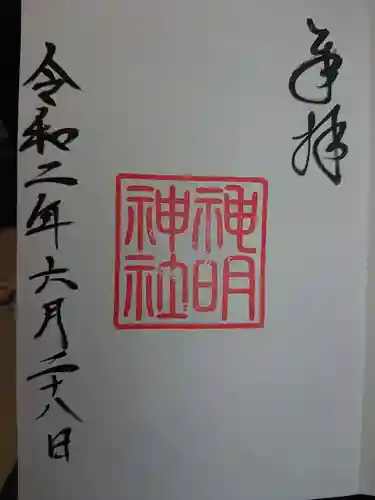 奉拝
神明
神社
令和二年六月二十八日